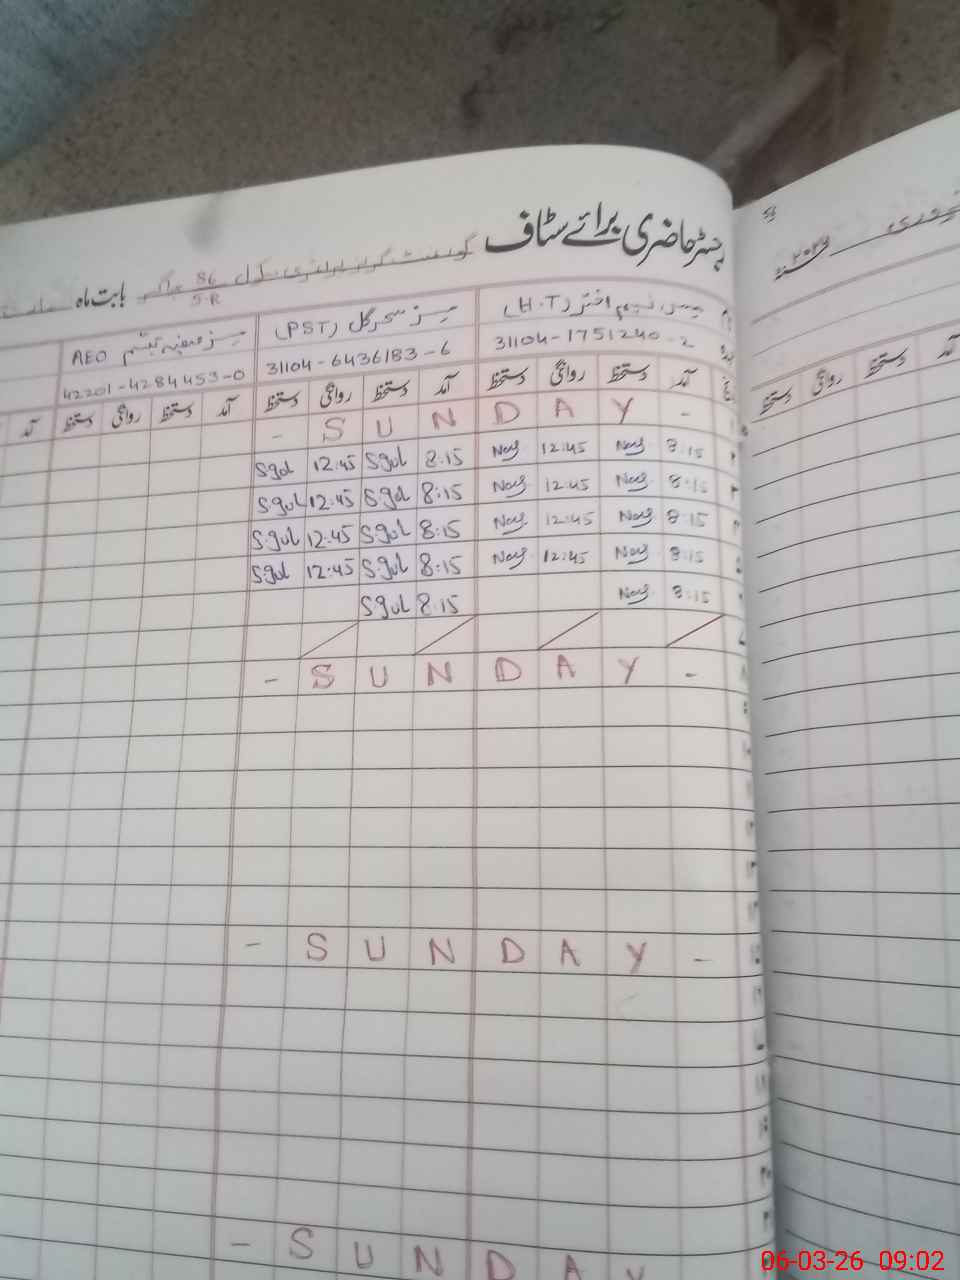 رجسٹر حاضری برائے سٹاف
86
5-R
بابت ماہ
مسز نسیم اختر (H.T)
31104-1751240-2
مسز سحر گل (PST)
31104-6436183-6
مسز AEO
42201-4284453-0
آمد دستخط روانگی دستخط آمد دستخط روانگی دستخط آمد دستخط روانگی دستخط آمد
- S U N D A Y -
8:15 Nas 12:45 Nas 8:15 Sgul 12:45 Sgul
8:15 Nas 12:45 Nas 8:15 Sgul 12:45 Sgul
8:15 Nas 12:45 Nas 8:15 Sgul 12:45 Sgul
8:15 Nas 12:45 Nas 8:15 Sgul 12:45 Sgul
8:15 Nas 8:15 Sgul
- S U N D A Y -
- S U N D A Y -
- S U N D A Y
آمد دستخط روانگی دستخط
06-03-26 09:02